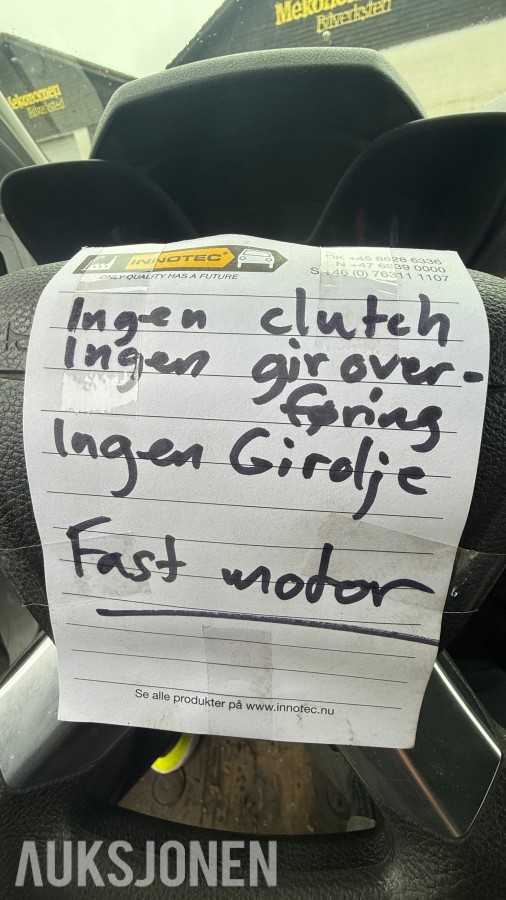 Mekonomen
Bilverksted
Mekonomen
Bilverksted
INNOTEC
ONLY QUALITY HAS A FUTURE
DK +45 8628 6336
N +47 6939 0000
S +46 (0) 76311 1107
Ingen clutch
Ingen girover-
føring
Ingen Girolje
Fast motor
Se alle produkter på www.innotec.nu
AUKSJONEN